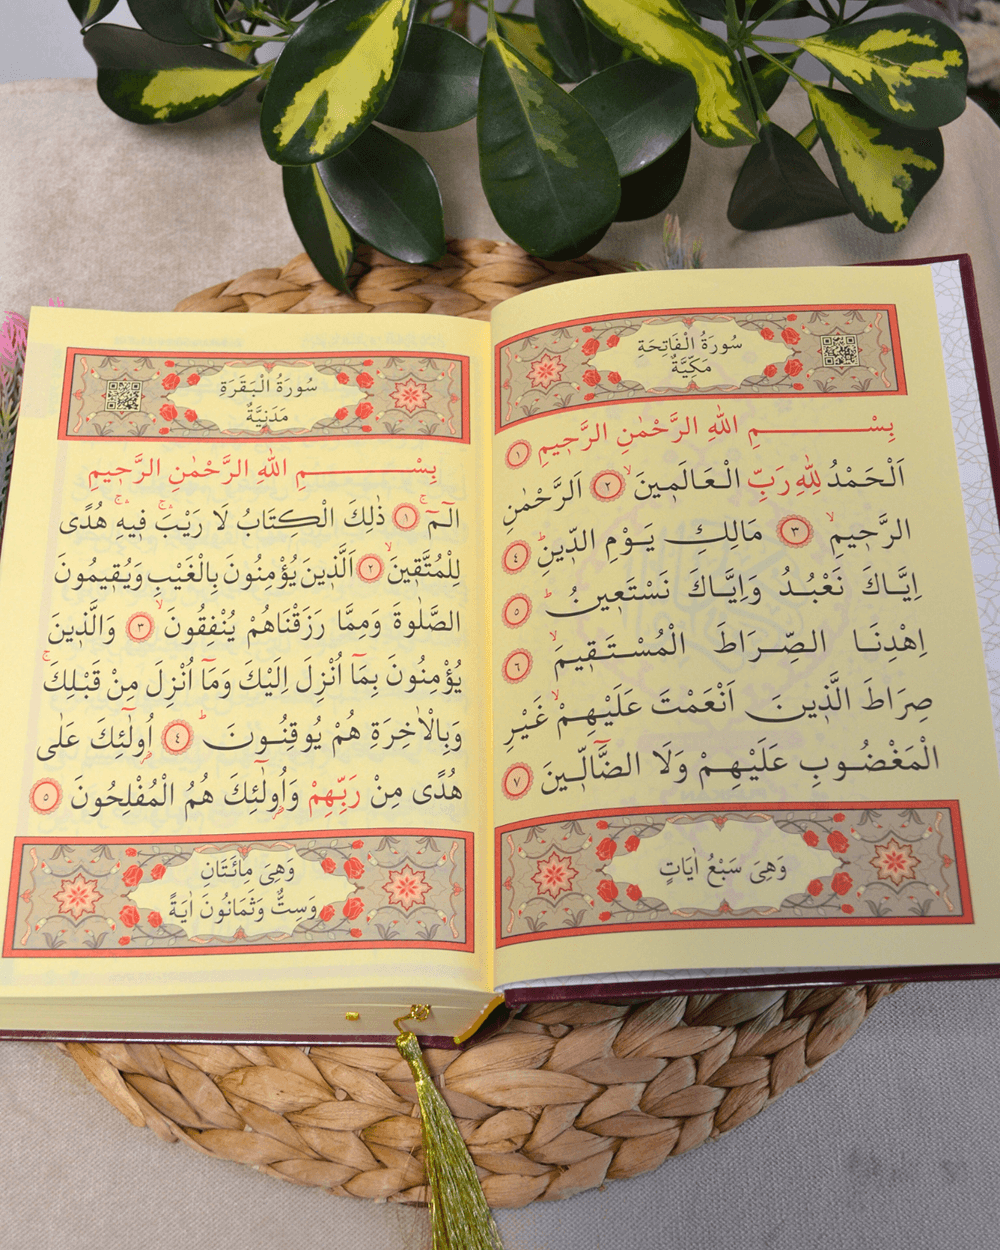 سُورَةُ الْفَاتِحَةِ
مَكِّيَّةٌ
بِسْمِ اللّٰهِ الرَّحْمٰنِ الرَّح۪يمِ ﴿١﴾
اَلْحَمْدُ لِلّٰهِ رَبِّ الْعَالَم۪ينَۙ ﴿٢﴾ اَلرَّحْمٰنِ
الرَّح۪يمِۙ ﴿٣﴾ مَالِكِ يَوْمِ الدّ۪ينِۜ ﴿٤﴾
اِيَّاكَ نَعْبُدُ وَاِيَّاكَ نَسْتَع۪ينُۜ ﴿٥﴾
اِهْدِنَا الصِّرَاطَ الْمُسْتَق۪يمَۙ ﴿٦﴾
صِرَاطَ الَّذ۪ينَ اَنْعَمْتَ عَلَيْهِمْۙ غَيْرِ
الْمَغْضُوبِ عَلَيْهِمْ وَلَا الضَّٓالّ۪ينَ ﴿٧﴾
وَهِىَ سَبْعُ اٰيَاتٍ
سُورَةُ الْبَقَرَةِ
مَدَنِيَّةٌ
بِسْمِ اللّٰهِ الرَّحْمٰنِ الرَّح۪يمِ
الٓمٓۚ ﴿١﴾ ذٰلِكَ الْكِتَابُ لَا رَيْبَۚۛ ف۪يهِۚۛ هُدًى
لِلْمُتَّق۪ينَۙ ﴿٢﴾ اَلَّذ۪ينَ يُؤْمِنُونَ بِالْغَيْبِ وَيُق۪يمُونَ
الصَّلٰوةَ وَمِمَّا رَزَقْنَاهُمْ يُنْفِقُونَۙ ﴿٣﴾ وَالَّذ۪ينَ
يُؤْمِنُونَ بِمَٓا اُنْزِلَ اِلَيْكَ وَمَٓا اُنْزِلَ مِنْ قَبْلِكَۚ
وَبِالْاٰخِرَةِ هُمْ يُوقِنُونَۜ ﴿٤﴾ اُو۬لٰٓئِكَ عَلٰى
هُدًى مِنْ رَبِّهِمْ وَاُو۬لٰٓئِكَ هُمُ الْمُفْلِحُونَ ﴿٥﴾
وَهِىَ مِائَتَانِ
وَسِتٌّ وَثَمَانُونَ اٰيَةً